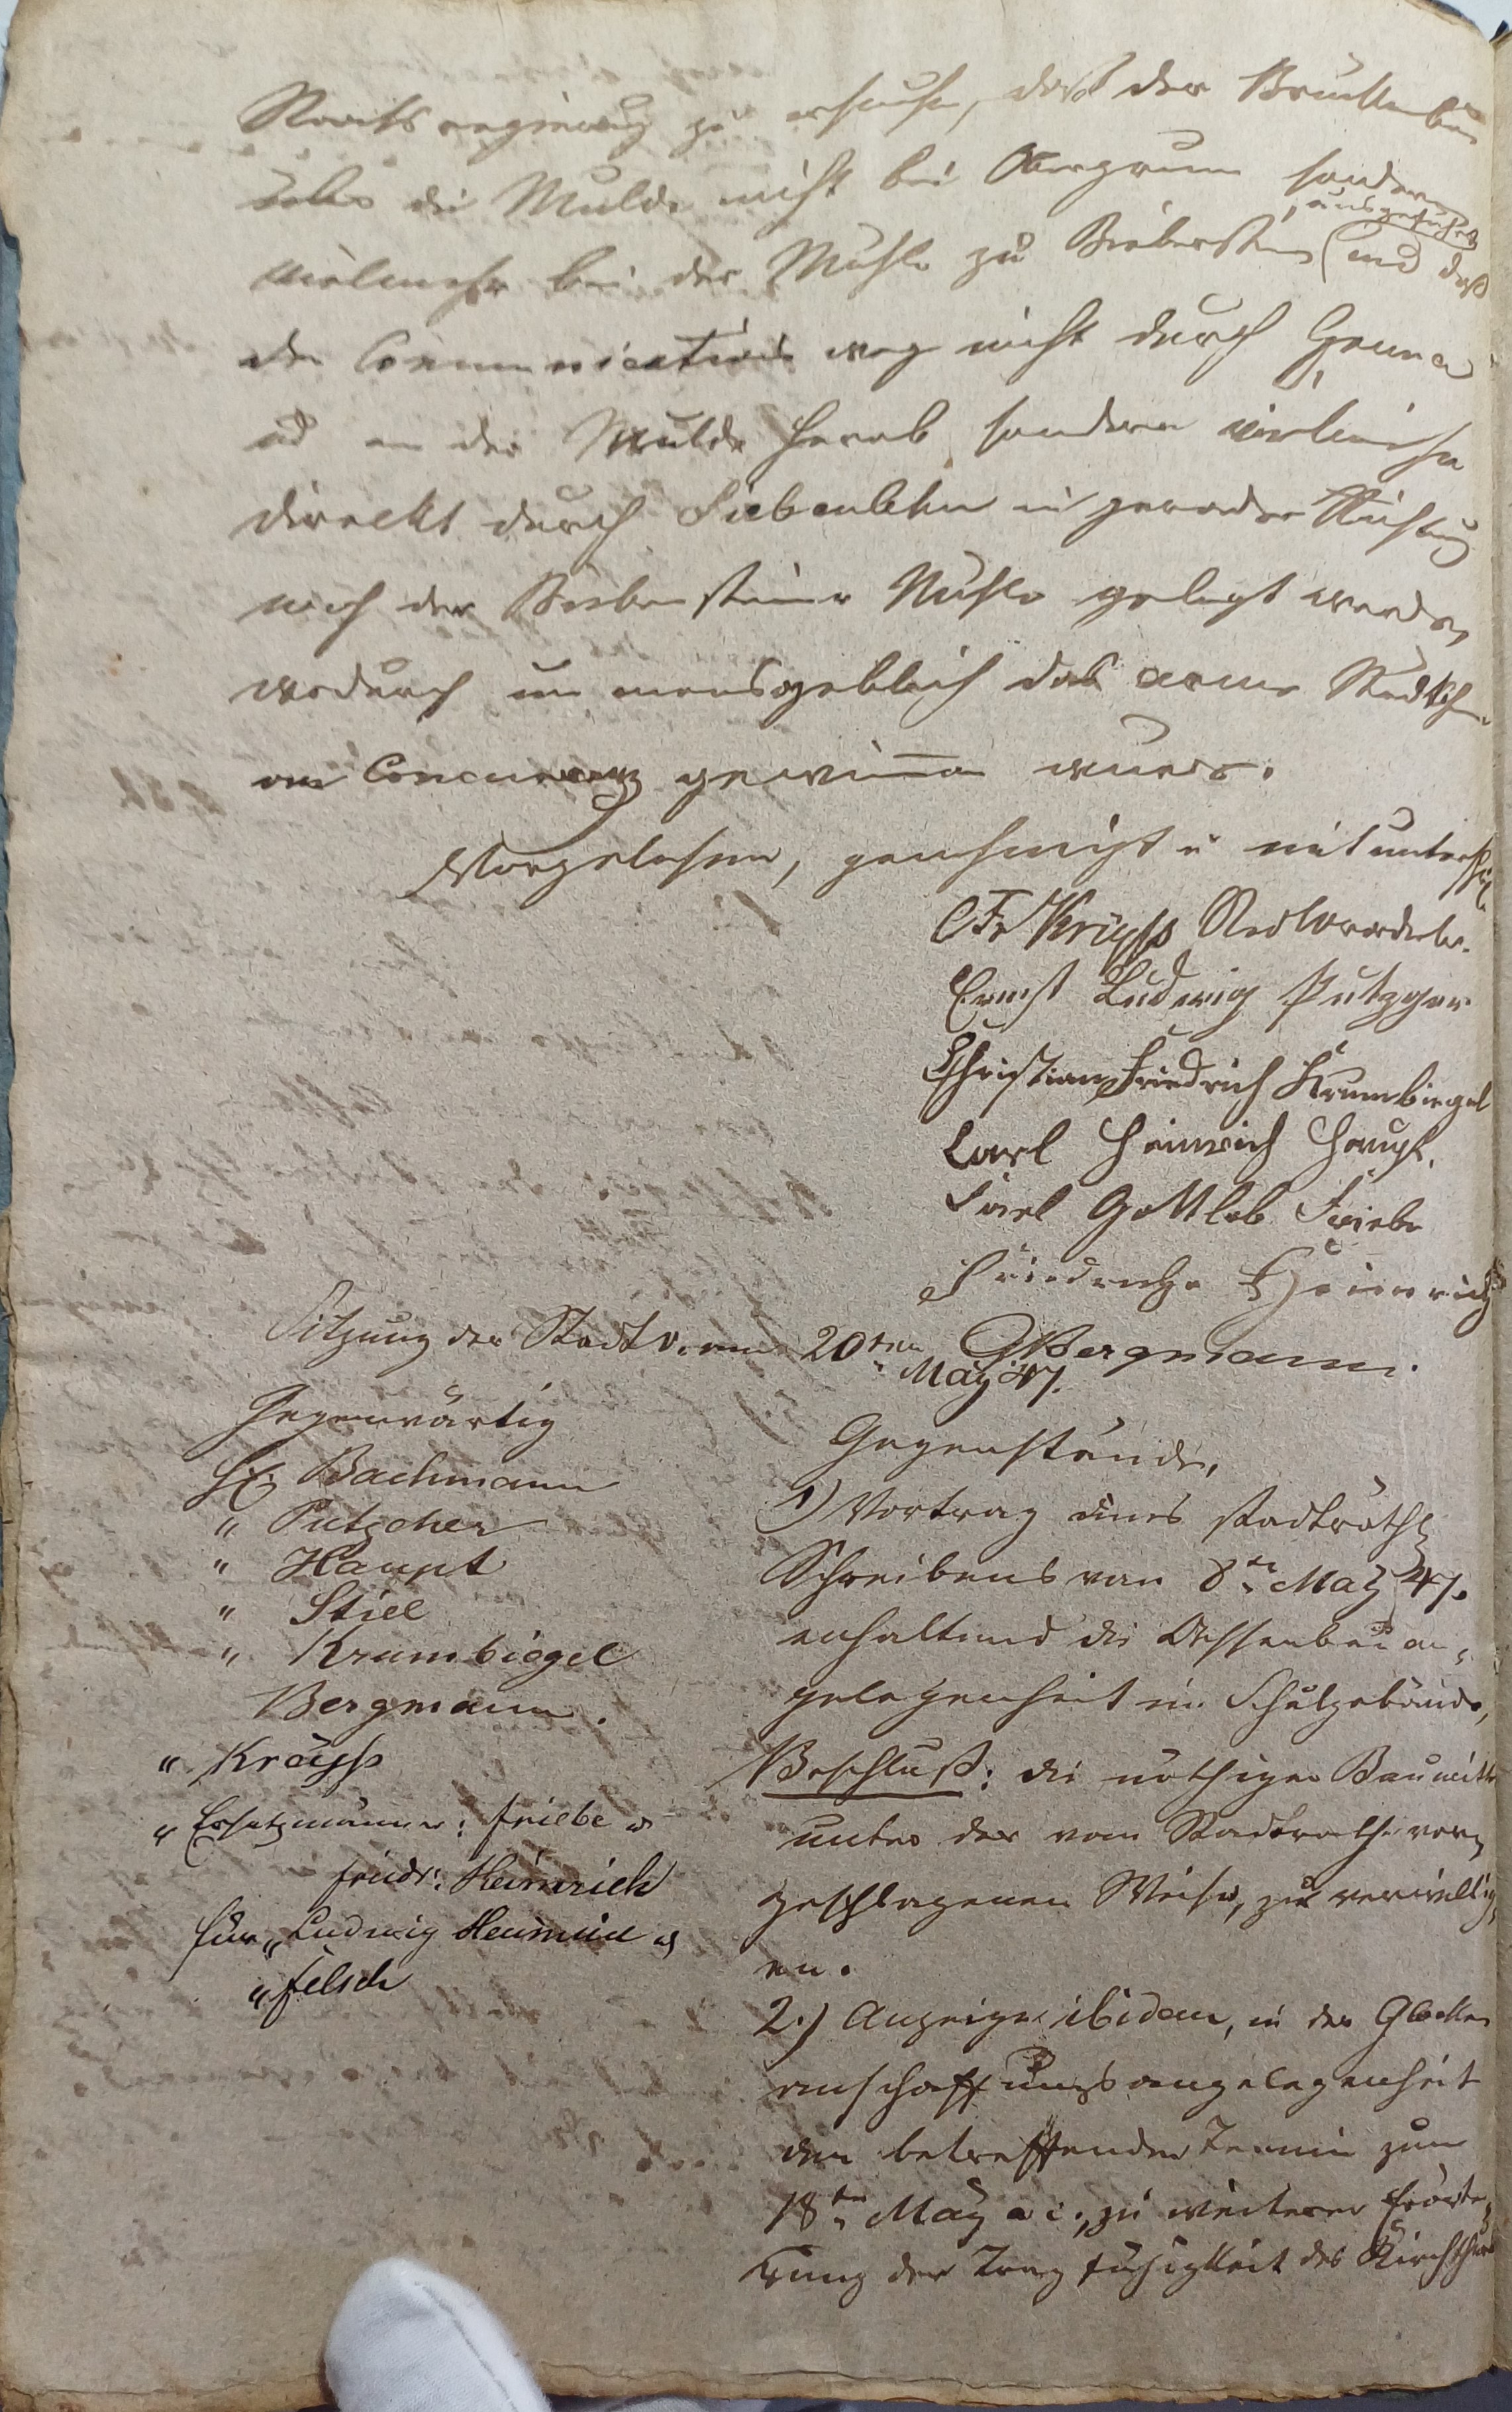 Staatsregierung zu ersuchen, daß der Brückenbau
über die Mulde nicht bei Obergruna sondern
vielmehr bei der Mühle zu Bieberstein (ausgeführt) und daß
der Communicationsweg nicht durch Gruna
und an der Mulde herab sondern vielmehr
direckt durch Siebenlehn in gerader Richtung
nach der Biebersteiner Mühle gelegt werde,
wodurch unmansgeblich das arme Städtchen
an Concurrenz gewinnen würde.
Vorgelesen, genehmigt u mitunterschr.
Kröpsh Stadtverordneter.
Ernst Ludwig Putzger
Christian Friedrich Krumbiegel
Carl Heinrich Haupt.
Karl Gottlob Friebe
Friedrich Heinrich
Bergmann.
Sitzung der Stadtv. am 20ten May 47.
Gegenwärtig
H. Bachmann
" Putzcher
" Haupt
" Stiel
" Krumbiegel
Bergmann.
"
" Ersatzmänner: Friebe u
Friedr: Heinrich
für " Ludwig Heinrich u
" Felsch
Gegenstände,
1) Vortrag eines stadträthl
Schreibens vom 8ten May 47.
enhaltend die Essenbauan-
gelegenheit im Schulgebäude,
Beschluß: die nöthigen Baumittel
unter der vom Stadtrathe vor-
geschlagenen Weise, zu verwillig-
en.
2.) Anzeige ibidem, in der Glocken
anschaffungsangelegenheit
den betreffenden Termin zum
18ten May a c., zu weiterer Erörte-
rung der Tragfähigkeit des Kirchthurms